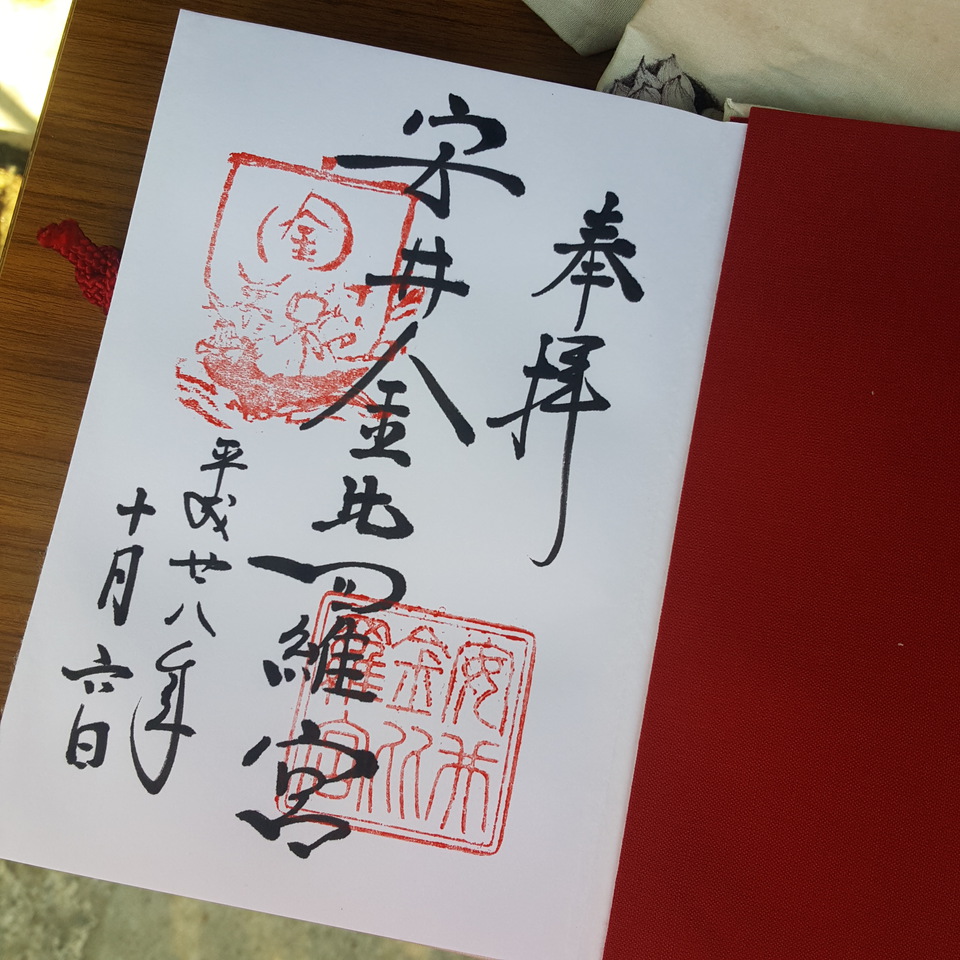 奉拝
安井金比羅宮
平成廿八年
十月六日
金
安井
金比
羅宮